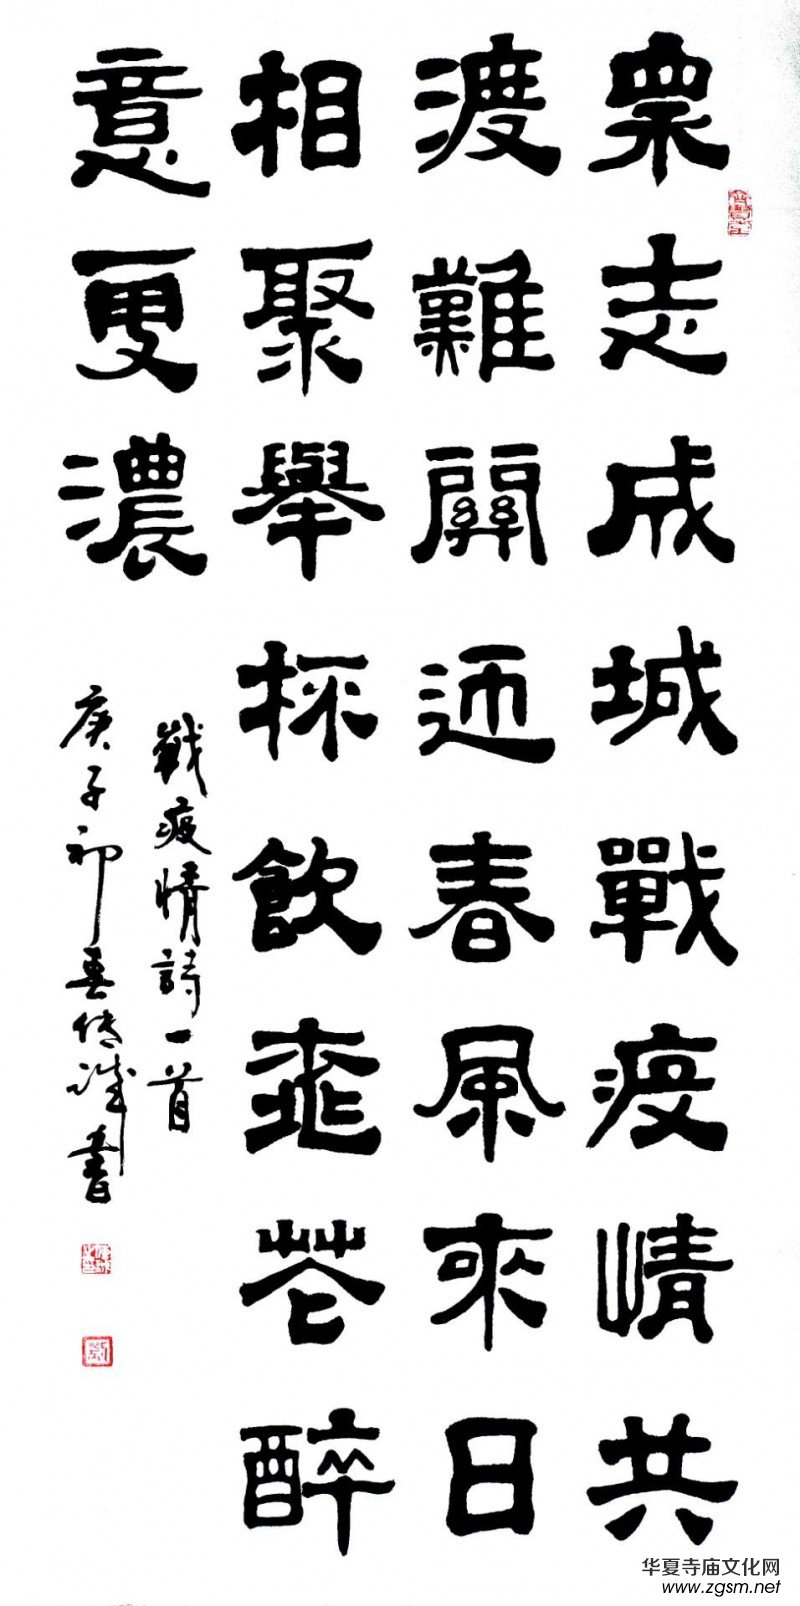 眾志成城戰疫情共
渡難關迎春風來日
相聚舉杯飲桃花醉
意更濃
戰疫情詩一首
庚子初传诚書
华夏寺庙文化网
www.zgsm.net